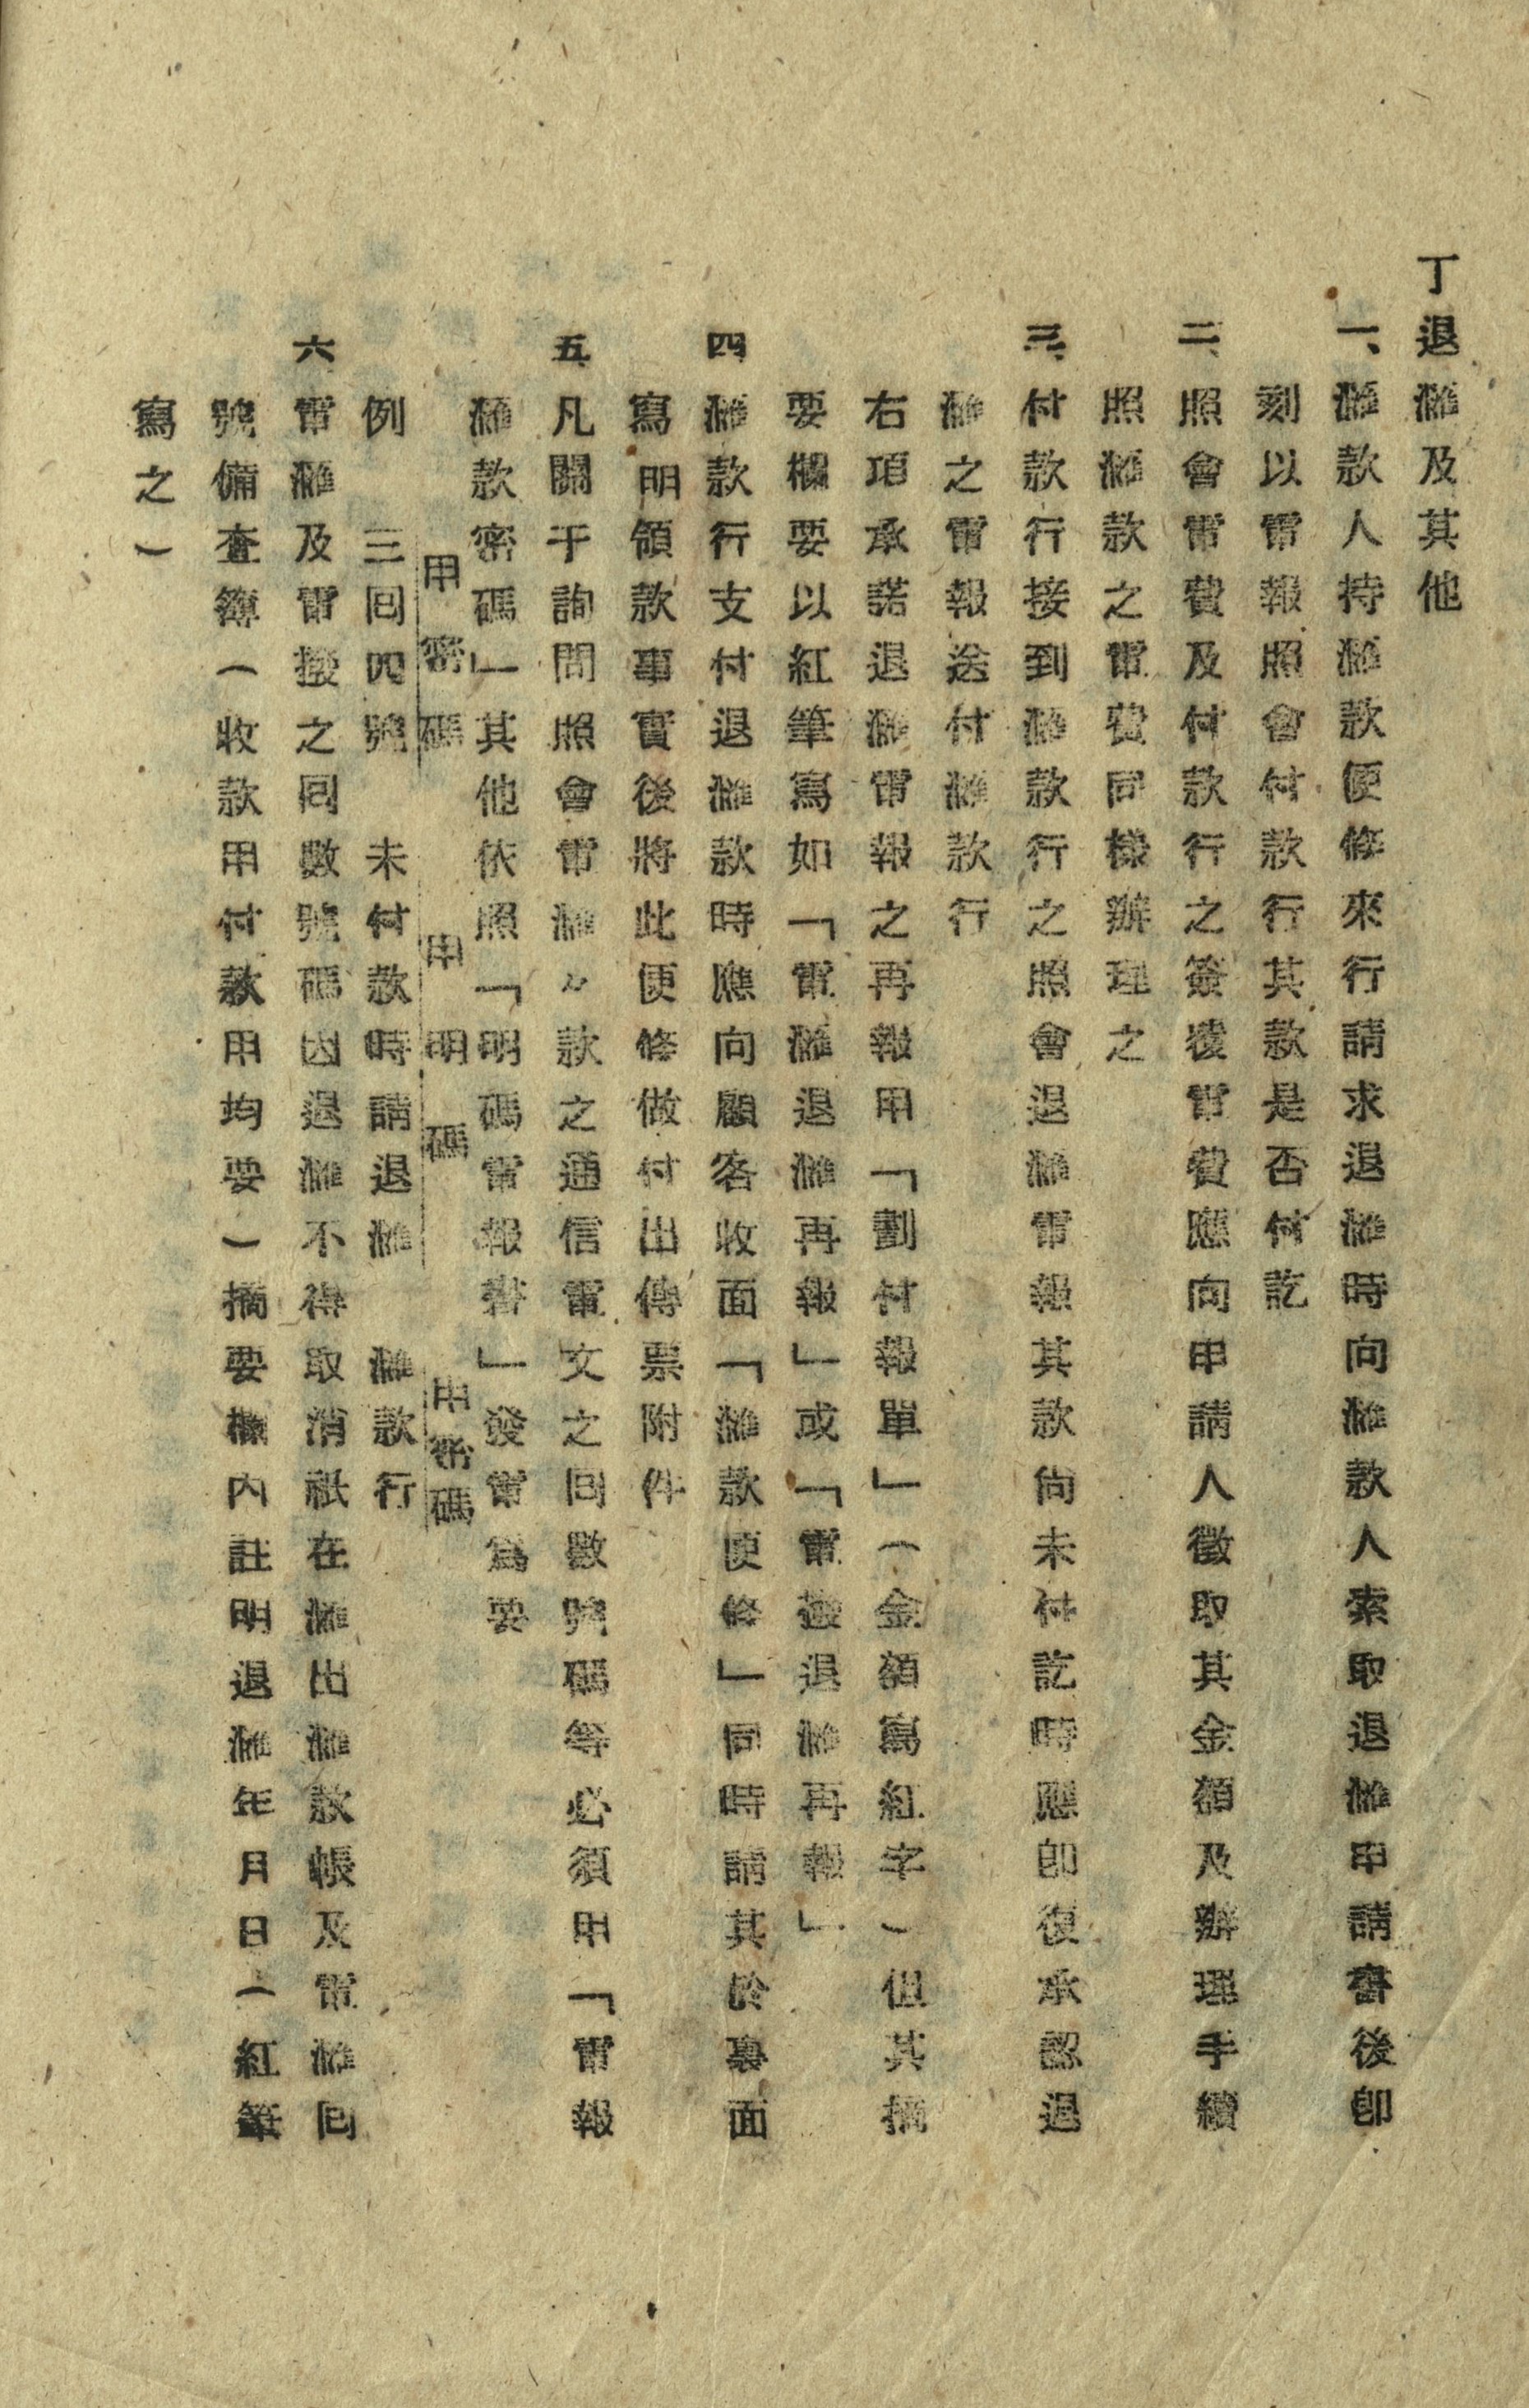 丁退滙及其他
一、滙款人持滙款便條來行請求退滙時向滙款人索取退滙申請書後卽
刻以電報照會付款行其款是否付訖
二、照會電費及付款行之簽覆電費應向申請人徵取其金額及辦理手續
照滙款之電費同樣辦理之
三、付款行接到滙款行之照會退滙電報其款尙未付訖時應卽復承認退
滙之電報送付滙款行
右項承諾退滙電報之再報用「劃付報單」（金額寫紅字）但其摘
要欄要以紅筆寫如「電滙退滙再報」或「電撥退滙再報」
四、滙款行支付退滙款時應向顧客收面「滙款便條」同時請其於裏面
寫明領款事實後將此便條做付出傳票附件
五、凡關于詢問照會電滙〃款之通信電文之回數號碼等必須用「電報
滙款密碼」其他依照「明碼電報書」發電爲要
用密碼　用明碼　用密碼
例　三回四號　未付款時請退滙　滙款行
六、電滙及電撥之回數號碼因退滙不得取消祇在滙出滙款帳及電滙回
號備查簿（收款用付款用均要）摘要欄內註明退滙年月日（紅筆
寫之）